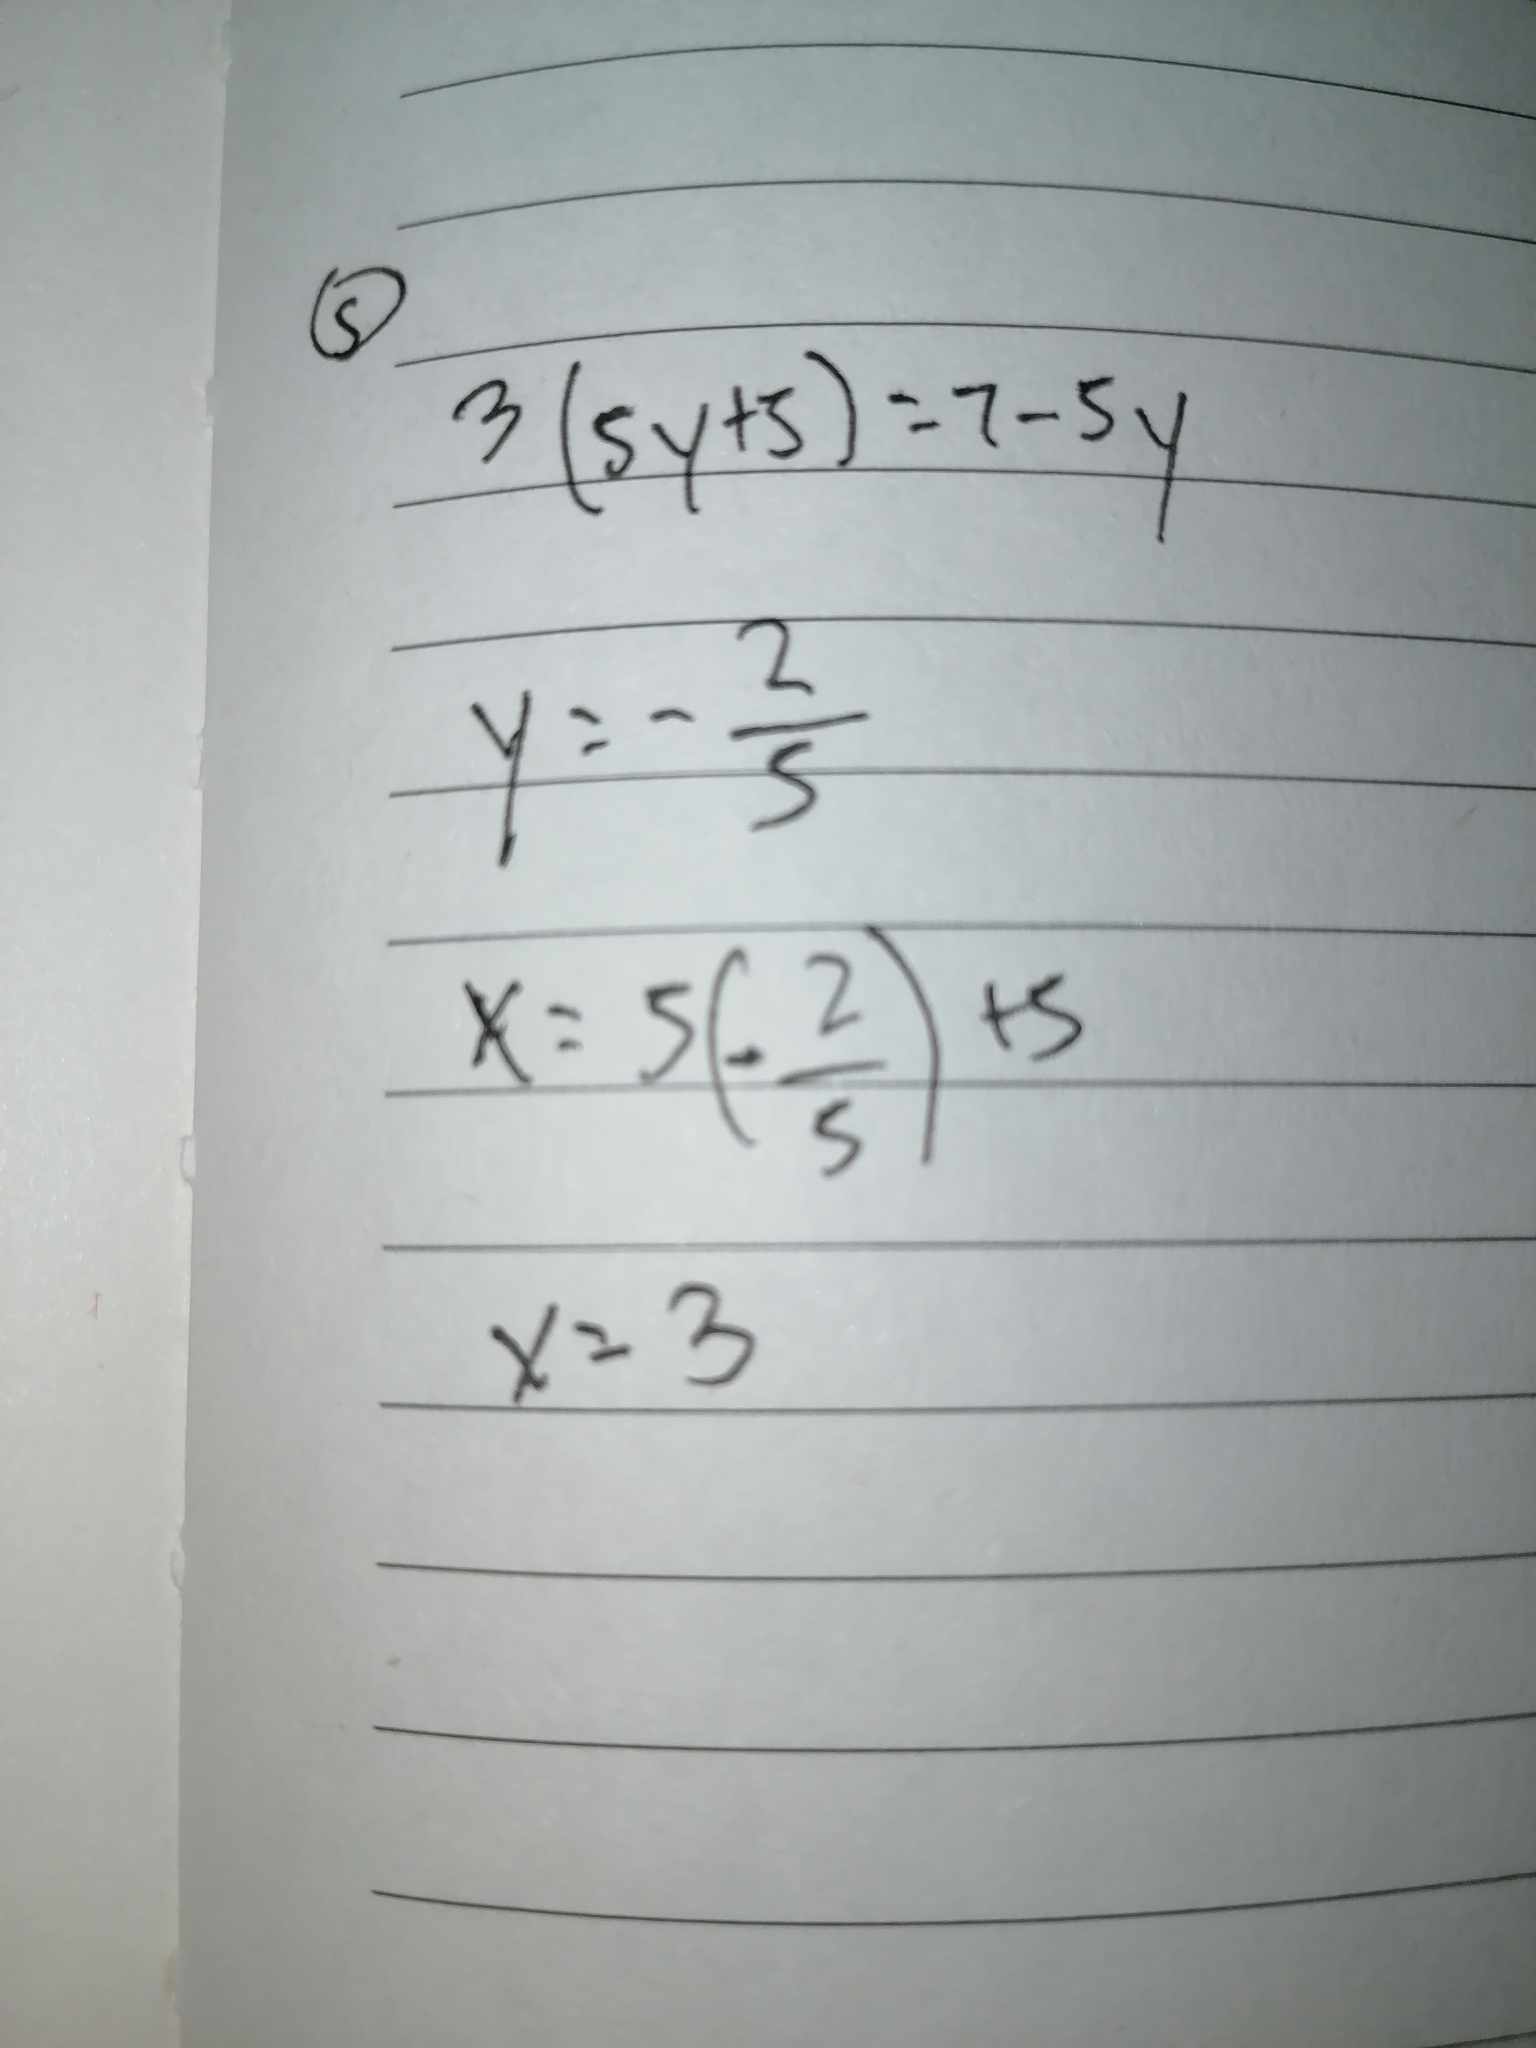 ⑤
3(5y+5)=7-5y
y=-2/5
x=5(-2/5)+5
x=3